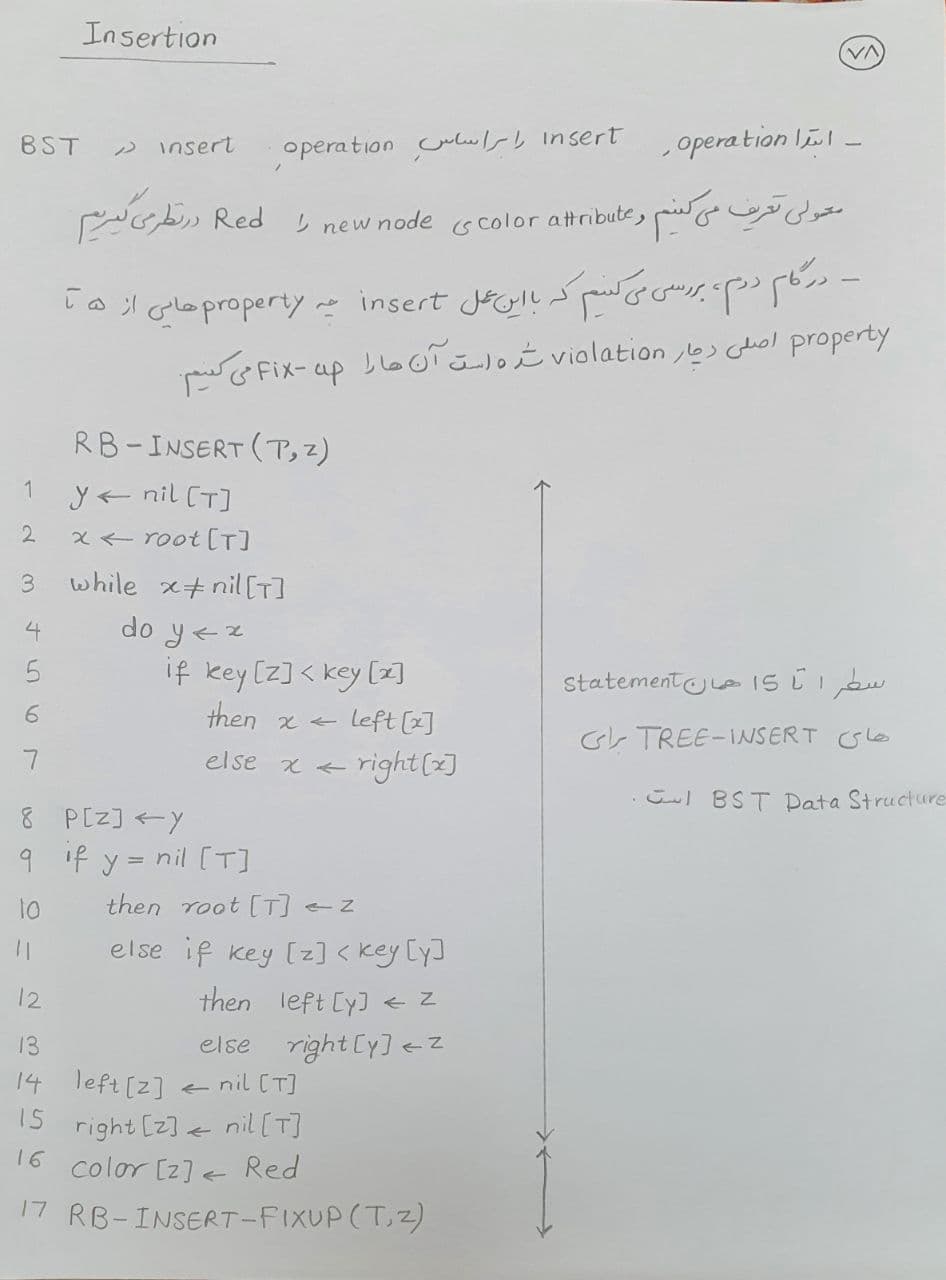 Insertion
۷۸
- ابتدا operation، insert را براساس operation، insert در BST
معمولی تعریف می‌کنیم و color attribute ی new node را Red درنظر می‌گیریم
- در گام دوم، بررسی می‌کنیم که با این عمل insert چه property هایی از ۵ تا
property اصلی دچار violation شده است آن ها را Fix-up می‌کنیم.
RB-INSERT(T,z)
1 y ← nil[T]
2 x ← root[T]
3 while x ≠ nil[T]
4 do y ← x
5 if key[z] < key[x]
6 then x ← left[x]
7 else x ← right[x]
8 P[z] ← y
9 if y = nil[T]
10 then root[T] ← z
11 else if key[z] < key[y]
12 then left[y] ← z
13 else right[y] ← z
14 left[z] ← nil[T]
15 right[z] ← nil[T]
16 color[z] ← Red
17 RB-INSERT-FIXUP(T,z)
سطر 1 تا 15 همان statement
های TREE-INSERT برای
BST Data Structure است.